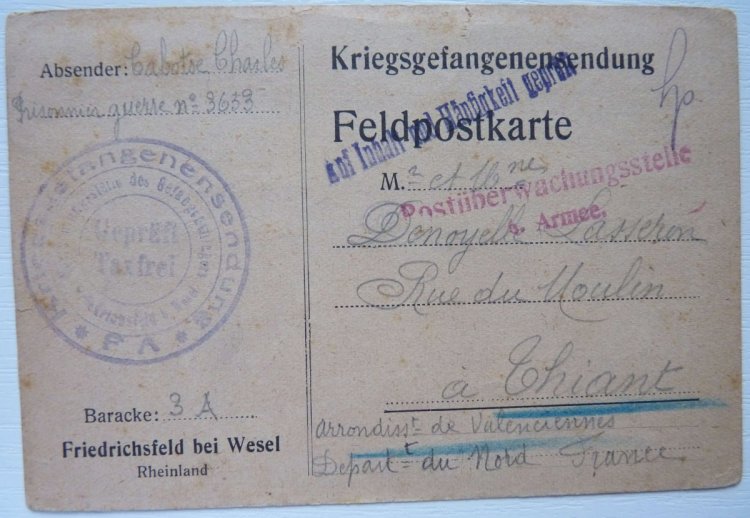 Absender: Cabotse Charles
Prisonnier guerre nº 3633
Kriegsgefangenensendung
Geprüft
Taxfrei
F.A
Baracke: 3 A
Friedrichsfeld bei Wesel
Rheinland
Kriegsgefangenensendung
Auf Inhalt und Häufigkeit geprüft
Feldpostkarte
M.r et Mme
Postüberwachungsstelle
Armee.
Denoyelle Lasseron
Rue du Moulin
à Thiant
arrondisst de Valenciennes
Départt du Nord France